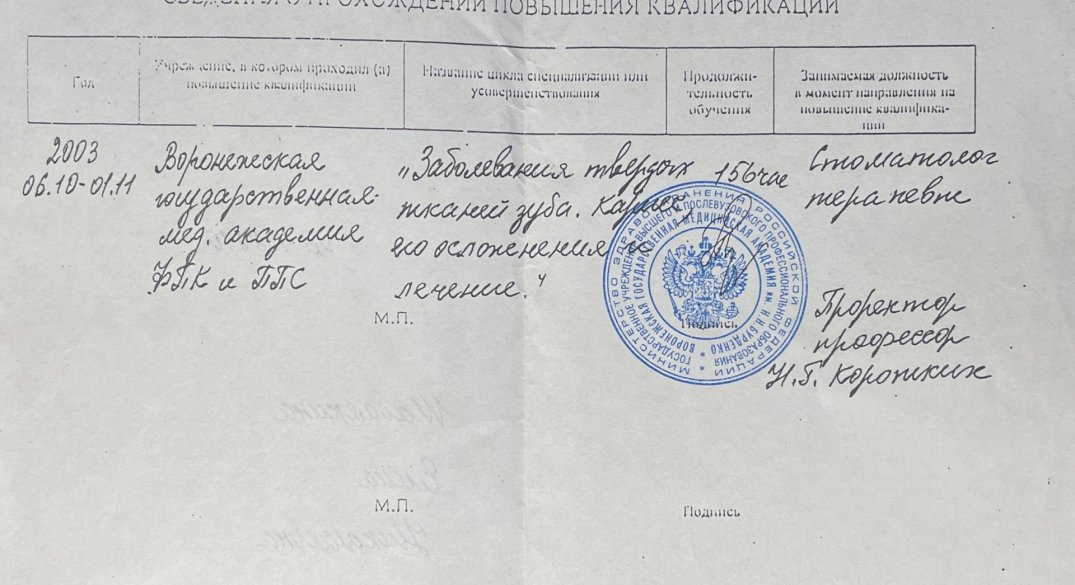 СВЕДЕНИЯ О ПРОХОЖДЕНИИ ПОВЫШЕНИЯ КВАЛИФИКАЦИИ
Год
Учреждение, в котором проходил (а)
повышение квалификации
Название цикла специализации или
усовершенствования
Продолжи-
тельность
обучения
Занимаемая должность
в момент направления на
повышение квалифика-
ции
2003
06.10-01.11
Воронежская
государственная
мед. академия
ФПК и ППС
„Заболевания твердых
тканей зуба. Кариес,
его осложнения и
лечение."
156 час
Стоматолог
терапевт
МИНИСТЕРСТВО ЗДРАВООХРАНЕНИЯ РОССИЙСКОЙ ФЕДЕРАЦИИ
ГОСУДАРСТВЕННОЕ УЧРЕЖДЕНИЕ ВЫСШЕГО И ПОСЛЕВУЗОВСКОГО ПРОФЕССИОНАЛЬНОГО ОБРАЗОВАНИЯ
ВОРОНЕЖСКАЯ ГОСУДАРСТВЕННАЯ МЕДИЦИНСКАЯ АКАДЕМИЯ им. Н.Н. БУРДЕНКО
М.П.
Подпись
Проректор
профессор
Н.Г. Коротких
М.П.
Подпись